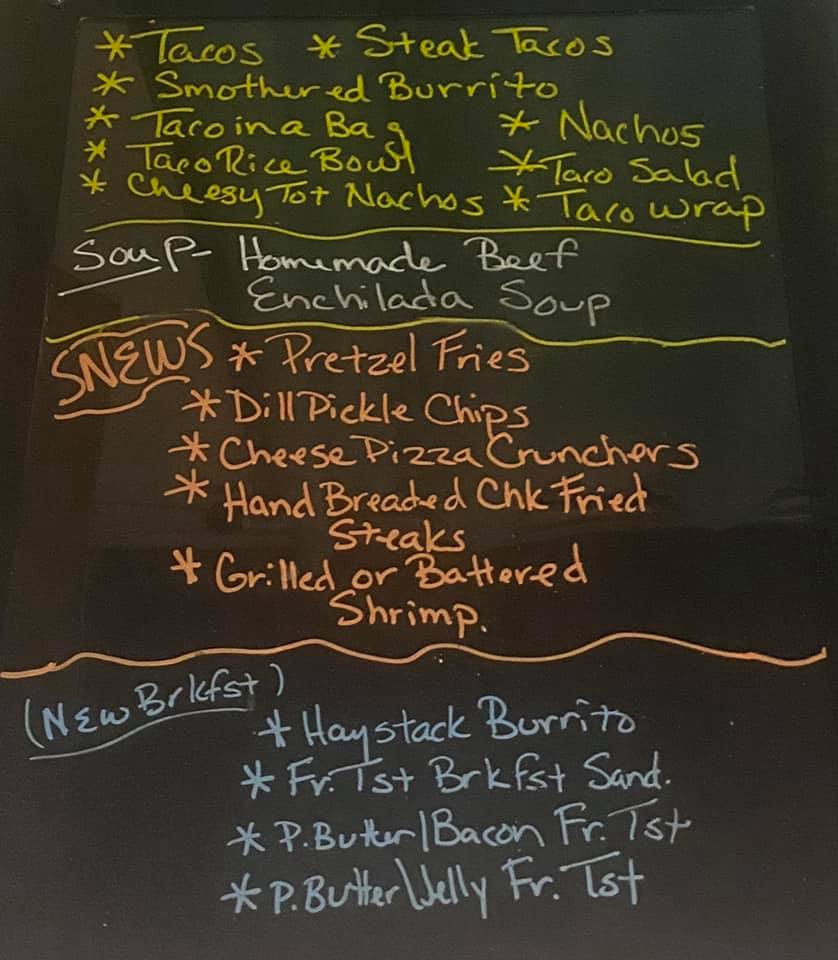 * Tacos * Steak Tacos
* Smothered Burrito
* Taco in a Bag * Nachos
* Taco Rice Bowl * Taco Salad
* Cheesy Tot Nachos * Taco Wrap
Soup- Homemade Beef
Enchilada Soup
SNEWS * Pretzel Fries
* Dill Pickle Chips
* Cheese Pizza Crunchers
* Hand Breaded Chk Fried
Steaks
* Grilled or Battered
Shrimp.
(New Brkfst)
* Haystack Burrito
* Fr. Tst Brkfst Sand.
* P. Butter/Bacon Fr. Tst
* P. Butter/Jelly Fr. Tst